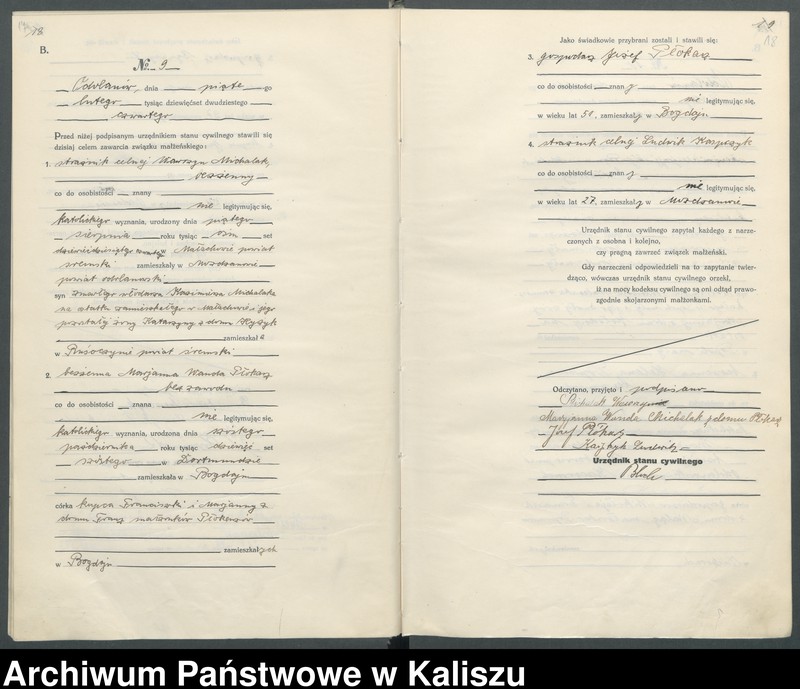 18
B.
No 9
Odolanów, dnia piąte go
lutego tysiąc dziewięćset dwudziestego
czwartego
Przed niżej podpisanym urzędnikiem stanu cywilnego stawili się
dzisiaj celem zawarcia związku małżeńskiego:
1. strażnik celny Wawrzyn Michalak,
bezżenny
co do osobistości znany
nie legitymujący się,
katolickiego wyznania, urodzony dnia piątego
sierpnia roku tysiąc ośm set
dziewięćdziesiątego w powiat
śremski zamieszkały w
powiat odolanowski
syn zmarłego włodarza Kazimierza Michalaka
na ostatku zamieszkałego w i jego
żony Katarzyny z domu
zamieszkała
w powiat śremski
2. bezżenna Marjanna Wanda Płokarz
bez zawodu
co do osobistości znana
nie legitymując się,
katolickiego wyznania, urodzona dnia szóstego
października roku tysiąc dziewięć set
szóstego w Dortmundzie
zamieszkała w Bogdaju
córka kupca Franciszka i Marjanny z
domu małżonków
zamieszkałych
w Bogdaju
18
Jako świadkowie przybrani zostali i stawili się:
3. gospodarz Józef Płokarz
co do osobistości znany
nie legitymując się,
w wieku lat 50, zamieszkały w Bogdaju
4. strażnik celny Ludwik
co do osobistości znany
nie legitymując się,
w wieku lat 27, zamieszkały w
Urzędnik stanu cywilnego zapytał każdego z narze-
czonych z osobna i kolejno,
czy pragną zawrzeć związek małżeński.
Gdy narzeczeni odpowiedzieli na to zapytanie twier-
dząco, wówczas urzędnik stanu cywilnego orzekł,
iż na mocy kodeksu cywilnego są oni odtąd prawo-
zgodnie skojarzonymi małżonkami.
Odczytano, przyjęto i podpisano
Wawrzyn
Maryjanna Wanda Michalak z domu Płokarz
Józef Płokarz
Ludwik
Urzędnik stanu cywilnego
Archiwum Państwowe w Kaliszu